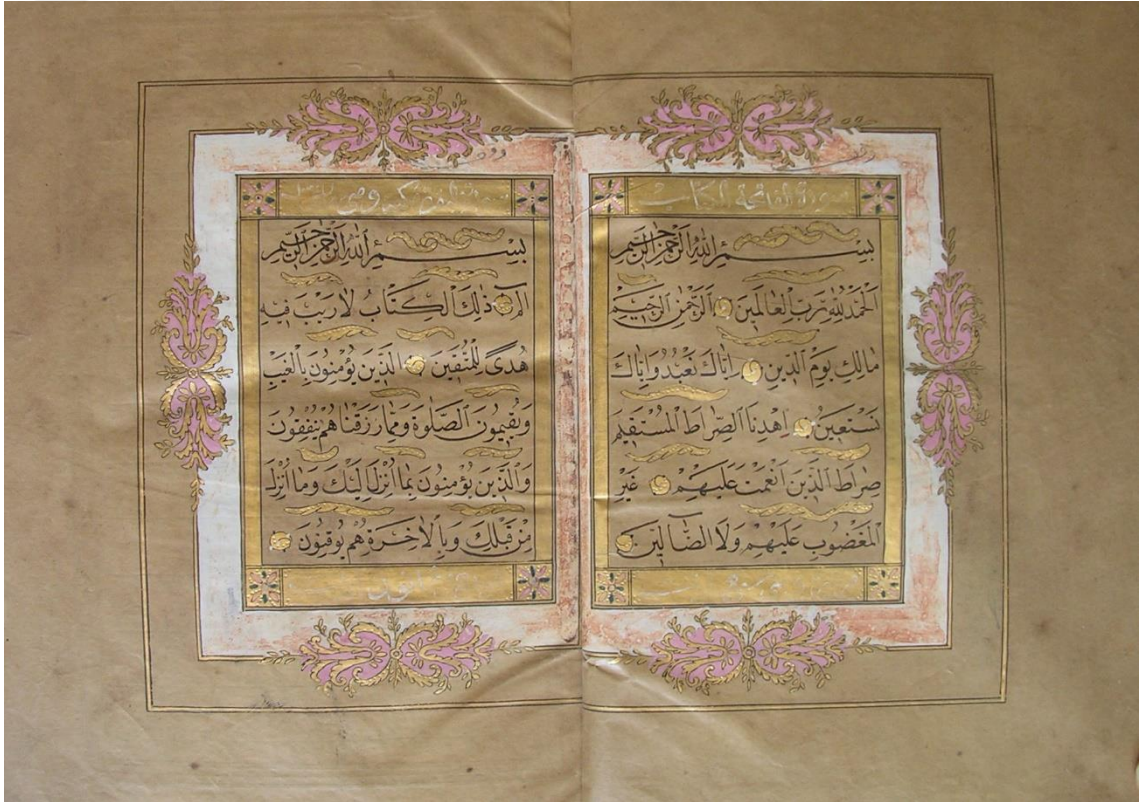 سورة الفاتحة الكتاب
بِسْمِ اللّٰهِ الرَّحْمٰنِ الرَّحِيمِ
اَلْحَمْدُ لِلّٰهِ رَبِّ الْعَالَمِينَ اَلرَّحْمٰنِ الرَّحِيمِ
مَالِكِ يَوْمِ الدِّينِ اِيَّاكَ نَعْبُدُ وَاِيَّاكَ
نَسْتَعِينُ اِهْدِنَا الصِّرَاطَ الْمُسْتَقِيمَ
صِرَاطَ الَّذِينَ اَنْعَمْتَ عَلَيْهِمْ غَيْرِ
الْمَغْضُوبِ عَلَيْهِمْ وَلَا الضَّالِّينَ
بِسْمِ اللّٰهِ الرَّحْمٰنِ الرَّحِيمِ
الٓمٓ ذٰلِكَ الْكِتَابُ لَا رَيْبَ فِيهِ
هُدًى لِلْمُتَّقِينَ اَلَّذِينَ يُؤْمِنُونَ بِالْغَيْبِ
وَيُقِيمُونَ الصَّلٰوةَ وَمِمَّا رَزَقْنَاهُمْ يُنْفِقُونَ
وَالَّذِينَ يُؤْمِنُونَ بِمَا اُنْزِلَ اِلَيْكَ وَمَا اُنْزِلَ
مِنْ قَبْلِكَ وَبِالْاٰخِرَةِ هُمْ يُوقِنُونَ